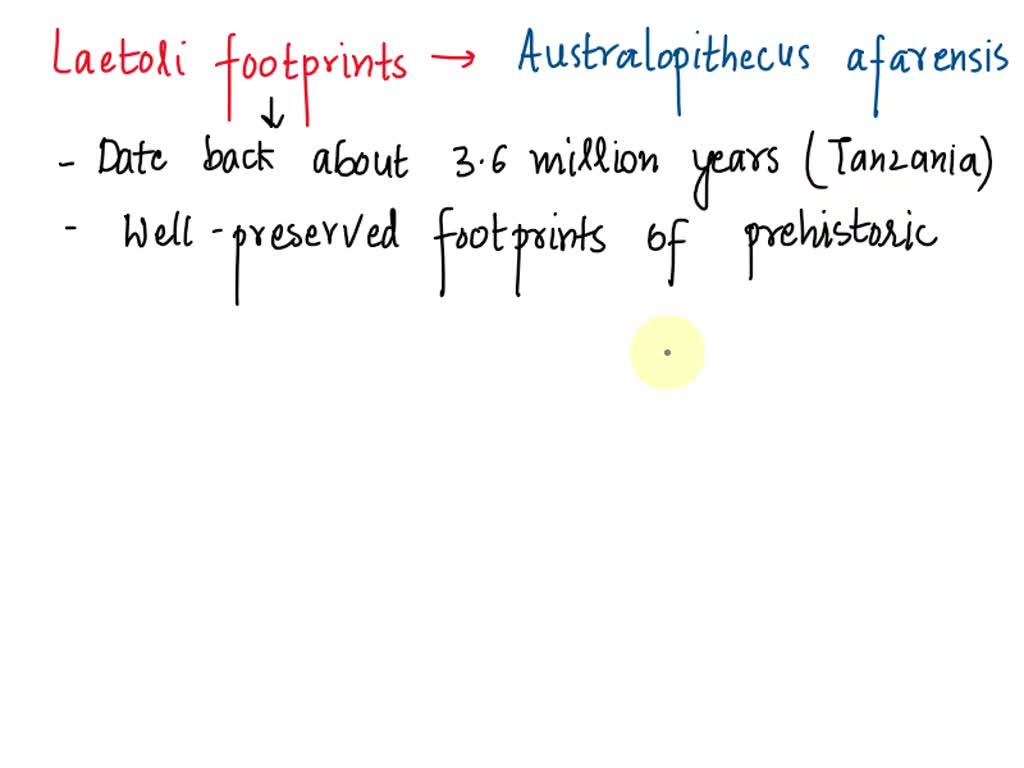 Laetoli footprints → Australopithecus afarensis
↓
- Date back about 3.6 million years (Tanzania)
- Well-preserved footprints of prehistoric